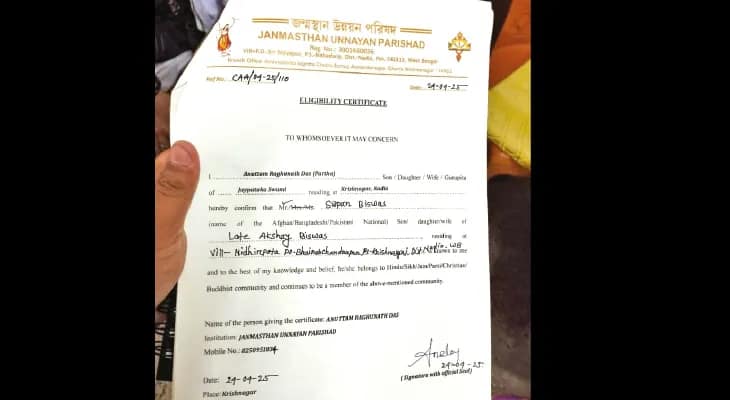 জন্মস্থান উন্নয়ন পরিষদ
JANMASTHAN UNNAYAN PARISHAD
Reg. No.:
Ref No. CAA/04-25/110
Date: 29-04-25
ELIGIBILITY CERTIFICATE
TO WHOMSOEVER IT MAY CONCERN
I Anuttam Raghunath Das (Partha) Son / Daughter / Wife / Guruputra
of Jaypataka Swami residing at Krishnagar, Nadia
hereby confirm that Mr./Mrs./Ms. Swapan Biswas
(name of the Afghan/Bangladeshi/Pakistani National) Son/ daughter/wife of
Late Akshay Biswas residing at
Vill- Po- Ps- Krishnaganj, Dist Nadia, WB known to me
and to the best of my knowledge and belief, he/she belongs to Hindu/Sikh/Jain/Parsi/Christian/
Buddhist community and continues to be a member of the above-mentioned community.
Name of the person giving the certificate: ANUTTAM RAGHUNATH DAS
Institution: JANMASTHAN UNNAYAN PARISHAD
Mobile No.:
29-04-25
(Signature with official Seal)
Date: 29-04-25
Place: Krishnagar